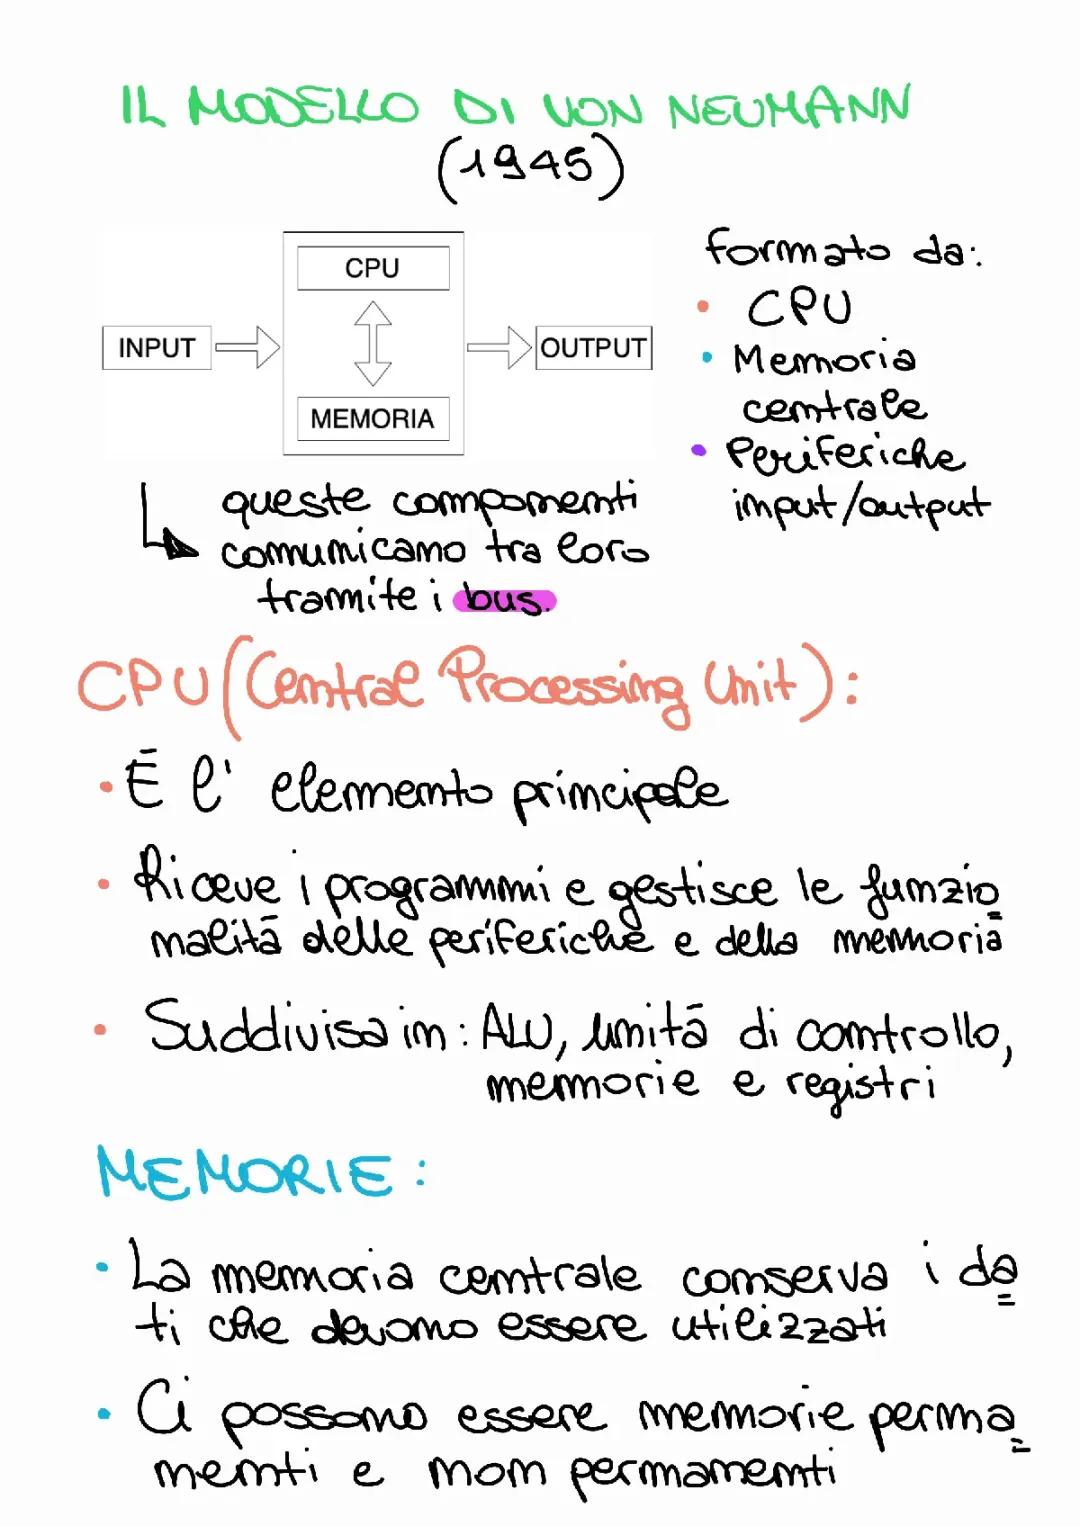 IL MODELLO DI VON NEUMANN
(1945)
CPU
INPUT
OUTPUT
MEMORIA
formato da:
• CPU
• Memoria
centrale
• Periferiche
input/output
queste componenti
comunicano tra loro
tramite i bus.
CPU (Central Processing Unit):
• É l'elemento principale
• Riceve i programmi e gestisce le funzio
nalità delle periferiche e della memoria
• Suddivisa in: ALU, unità di controllo,
memorie e registri
MEMORIE:
• La memoria centrale conserva i da
ti che devono essere utilizzati
• Ci possono essere memorie perma
nenti e non permanenti